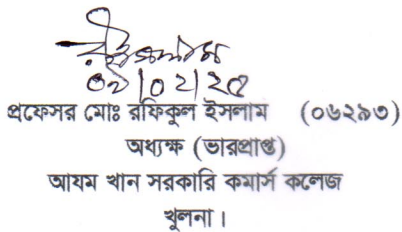 ০২/০২/২৫
প্রফেসর মোঃ রফিকুল ইসলাম (০৬২৯৩)
অধ্যক্ষ (ভারপ্রাপ্ত)
আযম খান সরকারি কমার্স কলেজ
খুলনা।